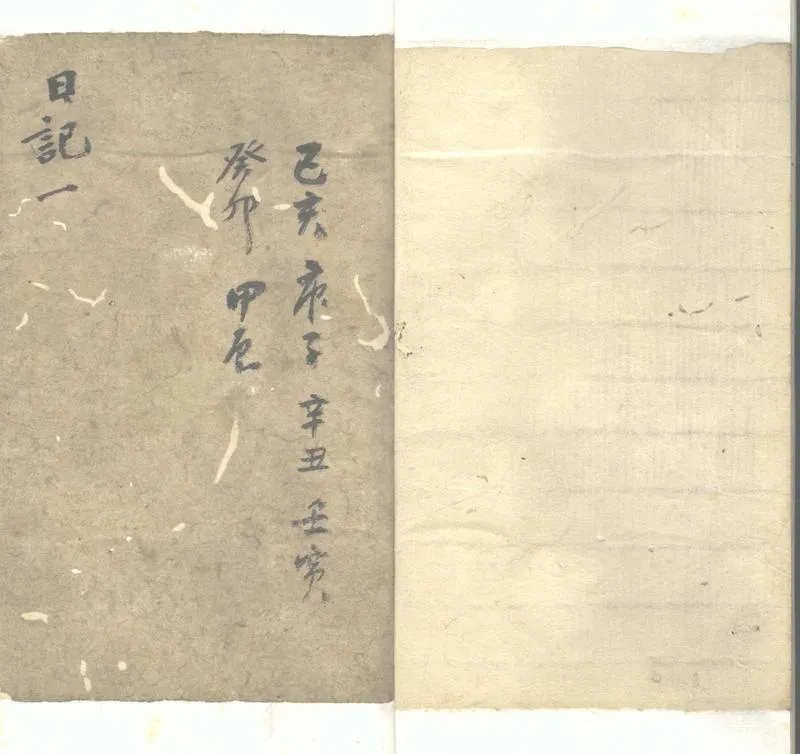 己亥 庚子 辛丑 壬寅
癸卯 甲辰
日記一